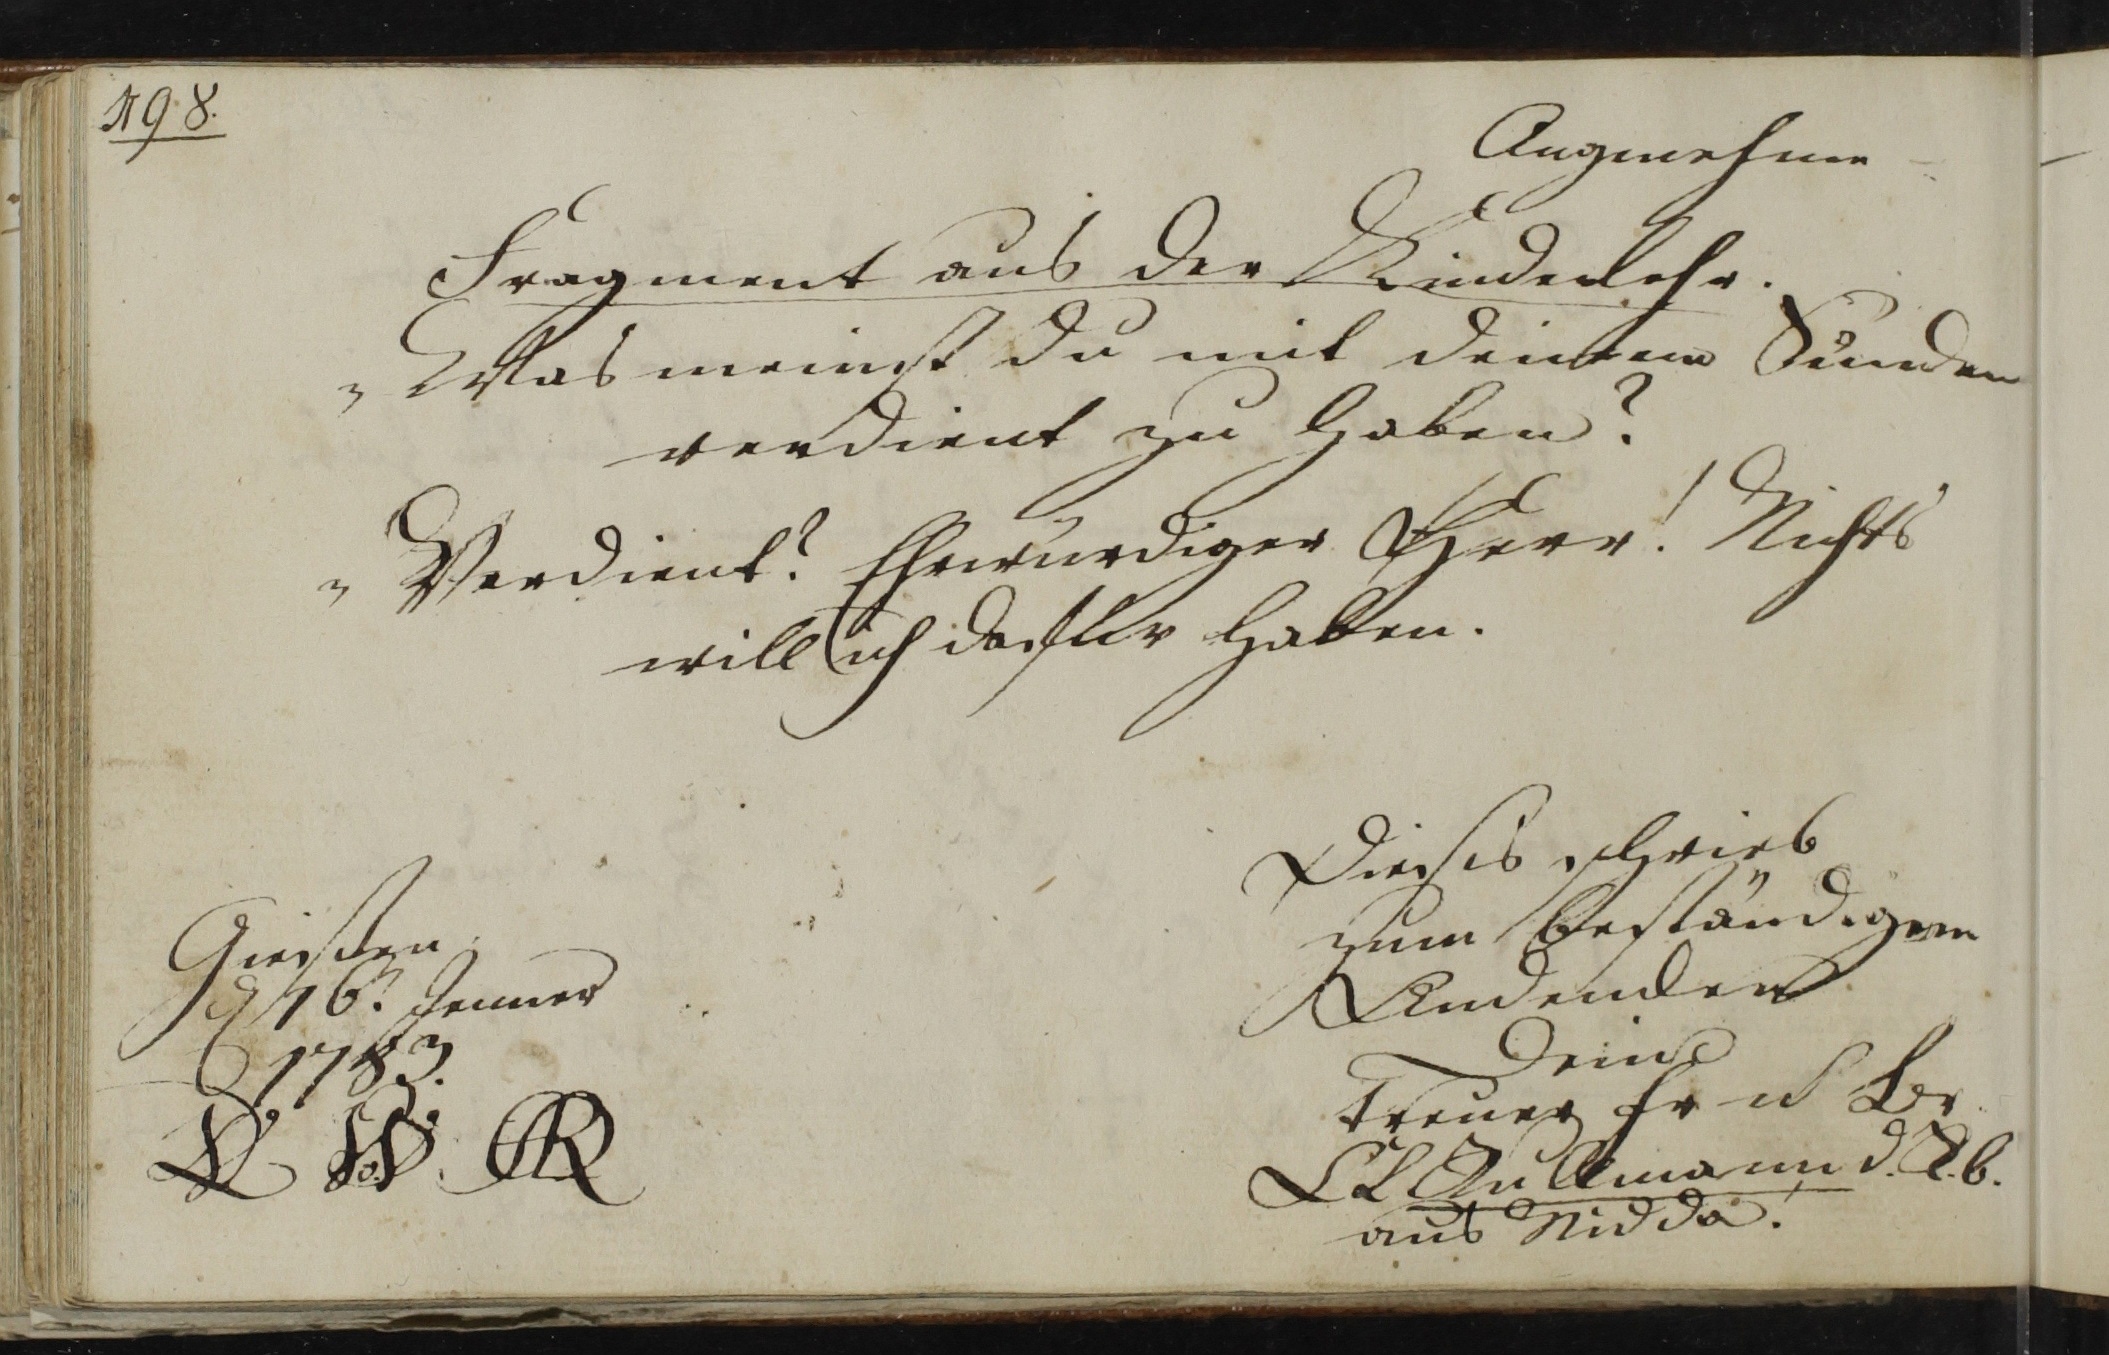 198.
Angenehme
Fragment aus der Kinderlehr.
„ Was meinst du mit deinen Sünden
verdient zu haben?
„ Verdient? Ehrwürdiger Herr! Nichts
will ich dafür haben.
Dieses schrieb
zum beständigen
Andenken
Dein
treuer Fr u Br
aus Nidda.
Giessen
d 16. Jenner
1783.